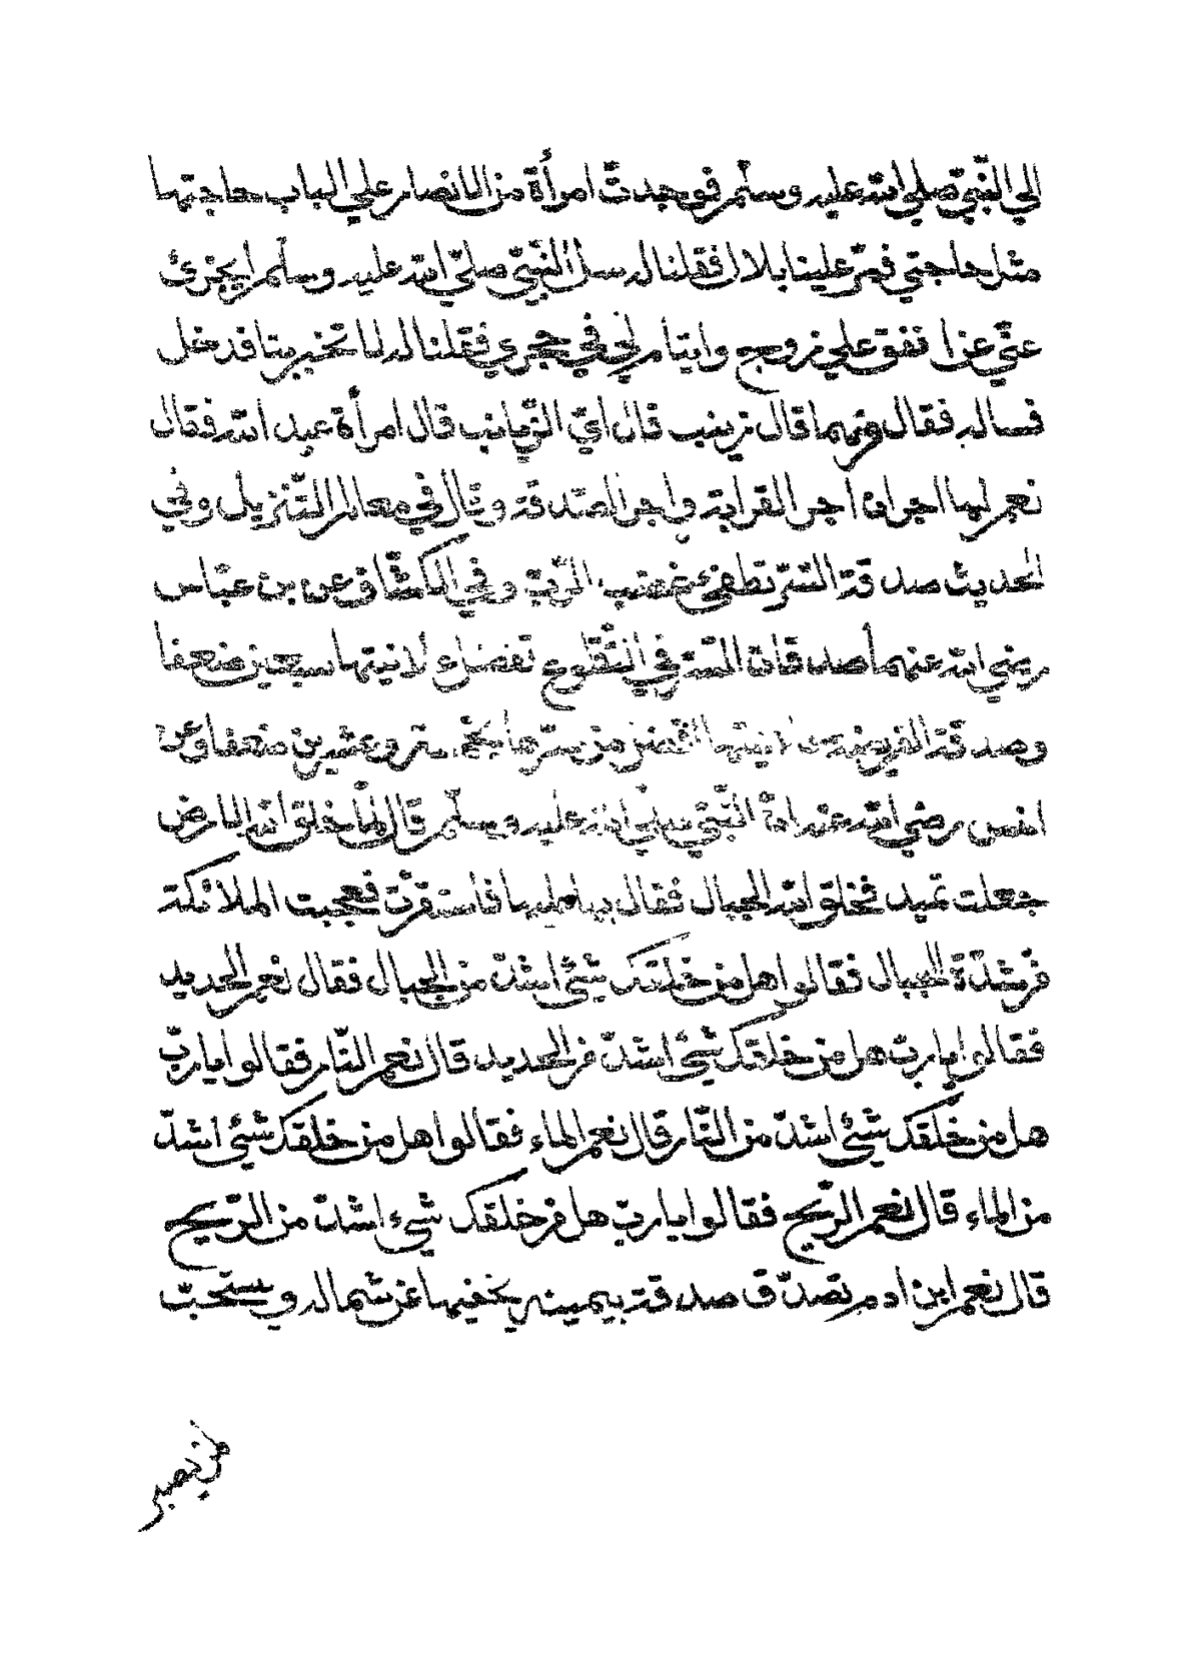 الي النّبيّ صلي الله عليه وسلّم فوجدتّ امرأة من الانصار علي الباب حاجتها
مثل حاجتي فمرّ علينا بلال فقلنا له سل النّبيّ صلّي الله عليه وسلّم ايجزئ
عنّي عن انفق علي زوج وايتام لي في حجري فقلنا له لا تخبر بنا فدخل
فساله فقال من هما قال زينب قال ايّ الزّيانب قال امرأة عبد الله فقال
نعم لهما اجران أجر القرابة واجر الصّدقة وقال في معالم التّنزيل وفي
الحديث صدقة السّرّ تطفئ غضب الرّبّ وفي الكشّاف عن بن عبّاس
رضي الله عنهما صدقات السّرّ في التّطوع تفضل علانيتها سبعين ضعفا
وصدقة الفريضة علانيتها افضل من سرّها بخمسة وعشرين ضعفا وعن
انس رضي الله عنه انّ النّبيّ صلي الله عليه وسلّم قال لمّا خلق الله الارض
جعلت تميد فخلق الله الجبال فقال بها عليها فاستقرّت فعجبت الملائكة
من شدّة الجبال فقالوا هل من خلقك شئ اشدّ من الجبال فقال نعم الحديد
فقالوا يا ربّ هل من خلقك شئ اشدّ من الحديد قال نعم النّار فقالوا يا ربّ
هل من خلقك شئ اشدّ من النّار قال نعم الماء فقالوا هل من خلقك شئ اشدّ
من الماء قال نعم الرّيح فقالوا يا ربّ هل من خلقك شيء اشدّ من الرّيح
قال نعم ابن ادم تصدّق صدقة بيمينه يخفيها عن شماله ويستحبّ